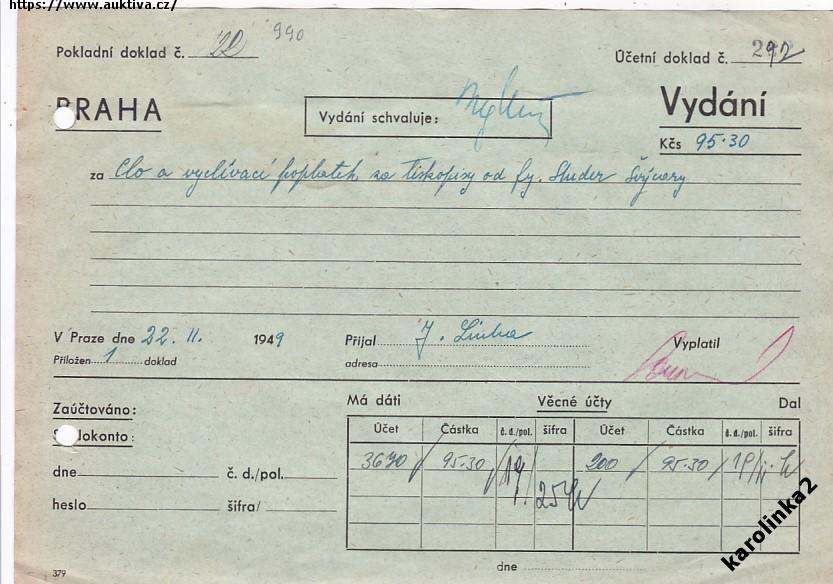 https://www.auktiva.cz/
Pokladní doklad č. 22 990
Účetní doklad č. 292
PRAHA
Vydání schvaluje:
Vydání
Kčs 95·30
za Clo a vyclívací poplatek za tiskopisy od fy. Studer Švýcary
V Praze dne 22. II. 1949
Přijal J. Linha
Vyplatil
Přiložen 1 doklad
adresa
Zaúčtováno:
Má dáti Věcné účty Dal
Účet Částka č. d./pol. šifra Účet Částka č. d./pol. šifra
Saldokonto:
3670 95·30 19 200 95·30 19/II.
dne č. d./pol.
heslo šifra/
dne
379
karolinka2